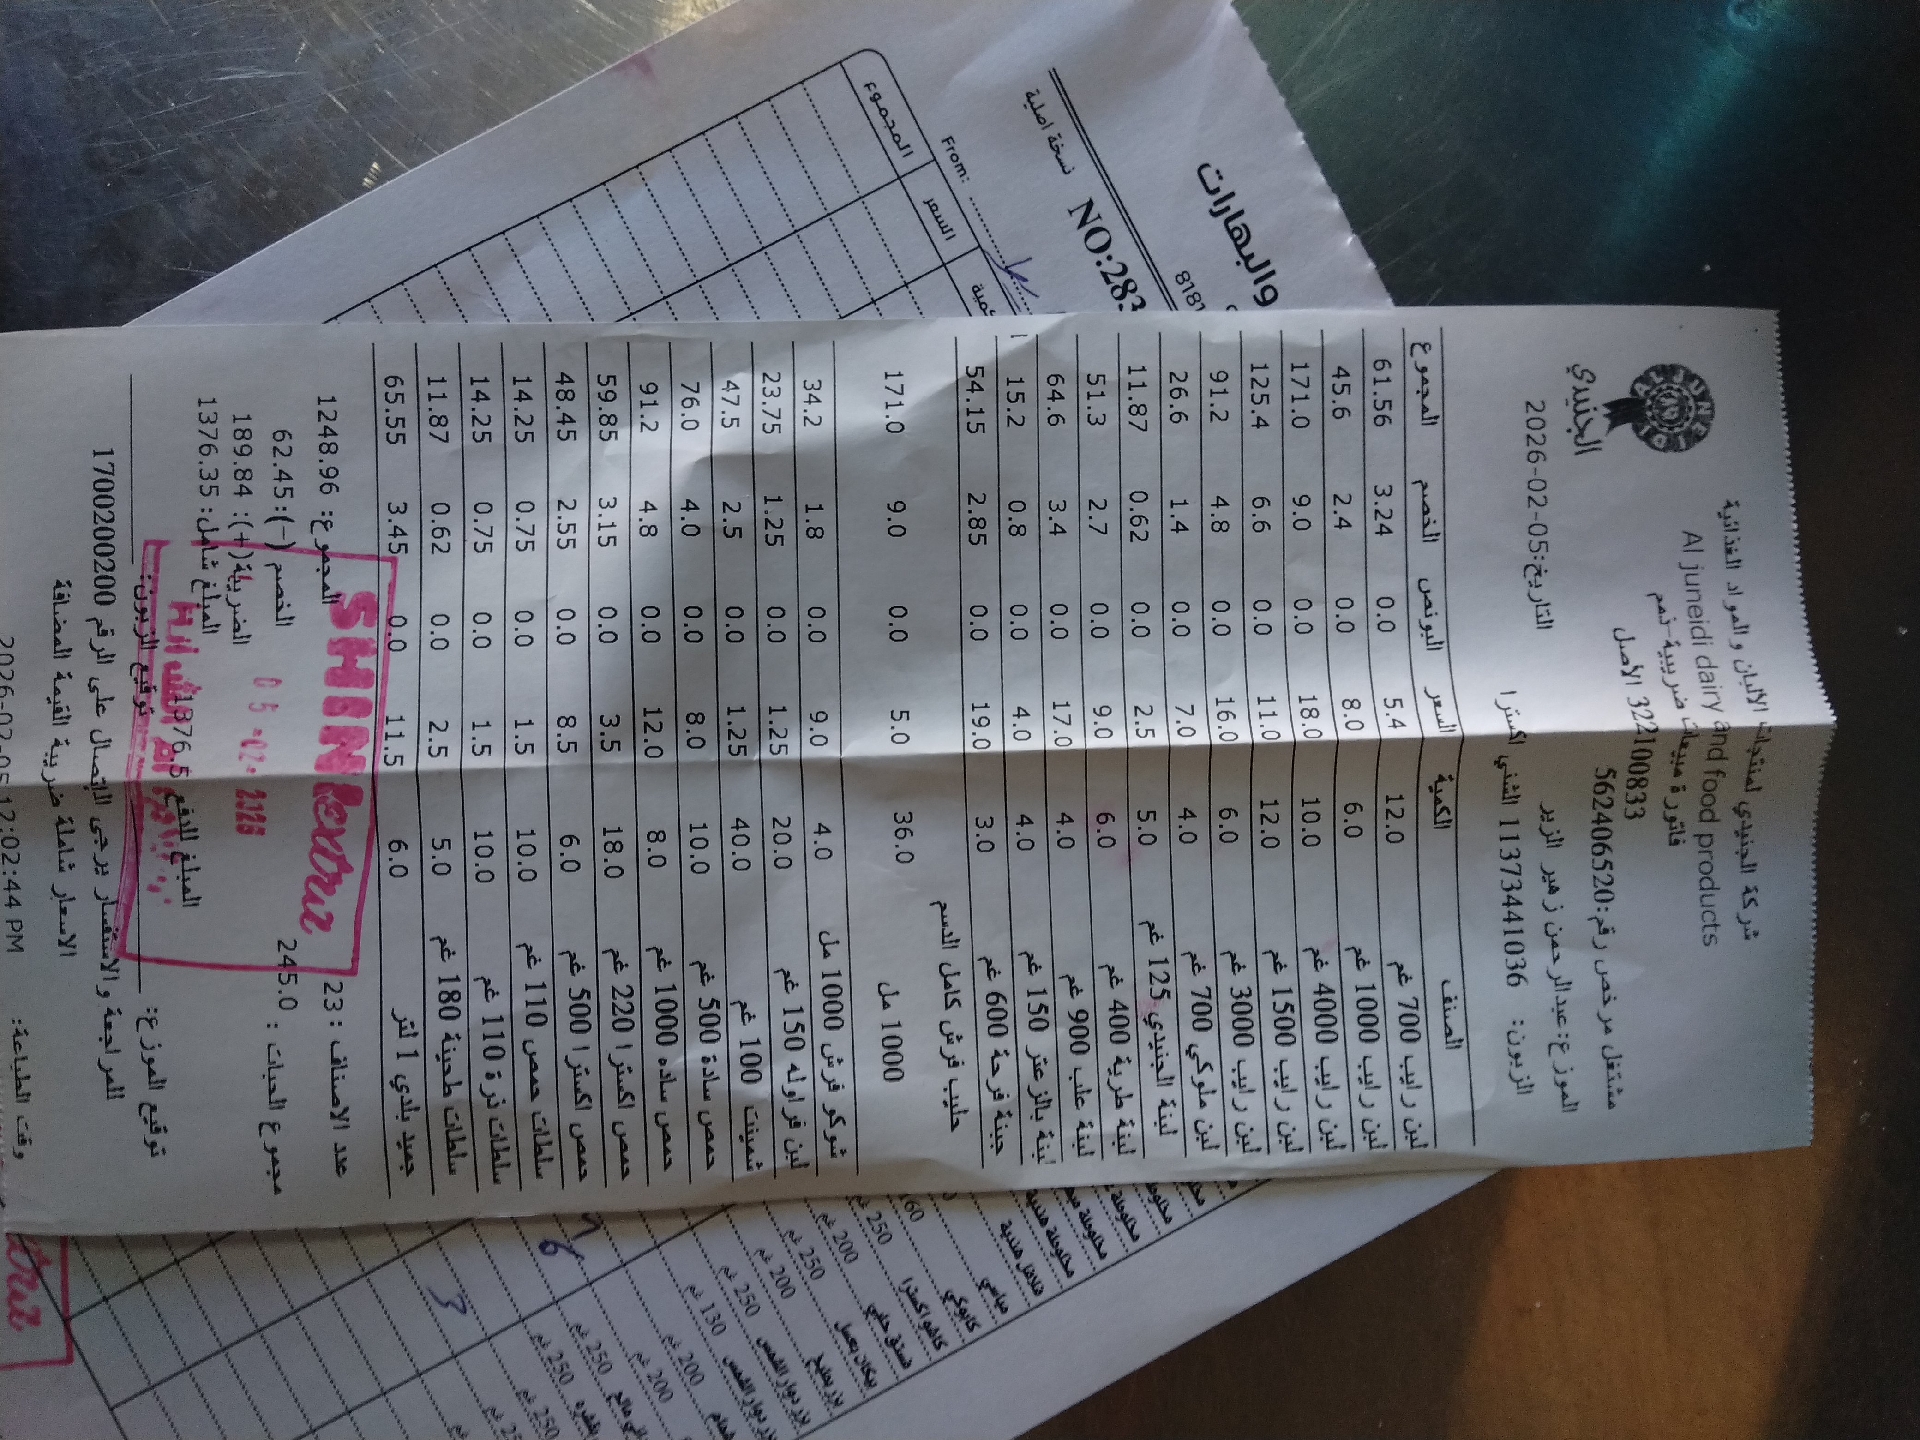 شركة الجنيدي لمنتجات الالبان والمواد الغذائية
Al juneidi dairy and food products
فاتورة مبيعات ضريبية-ذمم
322100833 الأصل
مشتغل مرخص رقم:562406520
الجنيدي
الموزع:عبدالرحمن زهير الزير
التاريخ:05-02-2026
الزبون: 11373441036 الشني اكسترا
الصنف الكمية السعر البونص الخصم المجموع
لبن رايب 700 غم 12.0 5.4 0.0 3.24 61.56
لبن رايب 1000 غم 6.0 8.0 0.0 2.4 45.6
لبن رايب 4000 غم 10.0 18.0 0.0 9.0 171.0
لبن رايب 1500 غم 12.0 11.0 0.0 6.6 125.4
لبن رايب 3000 غم 6.0 16.0 0.0 4.8 91.2
لبن ملوكي 700 غم 4.0 7.0 0.0 1.4 26.6
لبنة الجنيدي 125 غم 5.0 2.5 0.0 0.62 11.87
لبنة طرية 400 غم 6.0 9.0 0.0 2.7 51.3
لبنة علب 900 غم 4.0 17.0 0.0 3.4 64.6
لبنة بالزعتر 150 غم 4.0 4.0 0.0 0.8 15.2
جبنة فرحة 600 غم 3.0 19.0 0.0 2.85 54.15
حليب فرش كامل الدسم
1000 مل 36.0 5.0 0.0 9.0 171.0
شوكو فرش 1000 مل 4.0 9.0 0.0 1.8 34.2
لبن فراوله 150 غم 20.0 1.25 0.0 1.25 23.75
شمينت 100 غم 40.0 1.25 0.0 2.5 47.5
حمص سادة 500 غم 10.0 8.0 0.0 4.0 76.0
حمص ساده 1000 غم 8.0 12.0 0.0 4.8 91.2
حمص اكسترا 220 غم 18.0 3.5 0.0 3.15 59.85
حمص اكسترا 500 غم 6.0 8.5 0.0 2.55 48.45
سلطات حمص 110 غم 10.0 1.5 0.0 0.75 14.25
سلطات ذرة 110 غم 10.0 1.5 0.0 0.75 14.25
سلطات طحينة 180 غم 5.0 2.5 0.0 0.62 11.87
جميد بلدي 1 لتر 6.0 11.5 0.0 3.45 65.55
عدد الاصناف : 23 المجموع: 1248.96
مجموع الحبات : 245.0 الخصم (-): 62.45
الضريبة(+): 189.84
المبلغ شامل: 1376.35
المبلغ للدفع 1376.5
SHINI extra
05-02-2026
توقيع الموزع: توقيع الزبون:
المراجعة والاستفسار يرجى الاتصال على الرقم 1700200200
الاسعار شاملة ضريبة القيمة المضافة
وقت الطباعة:
والبهارات
8181
NO:283
نسخة اصلية
From:
السعر
المجموع
قلاقل هندية
كاشو اكسترا
فستق حلبي
160
250
200
250 غم
200 غم
250 غم
130 غم
200 غم
200 غم
250 غم
250 غم
250 غم
3